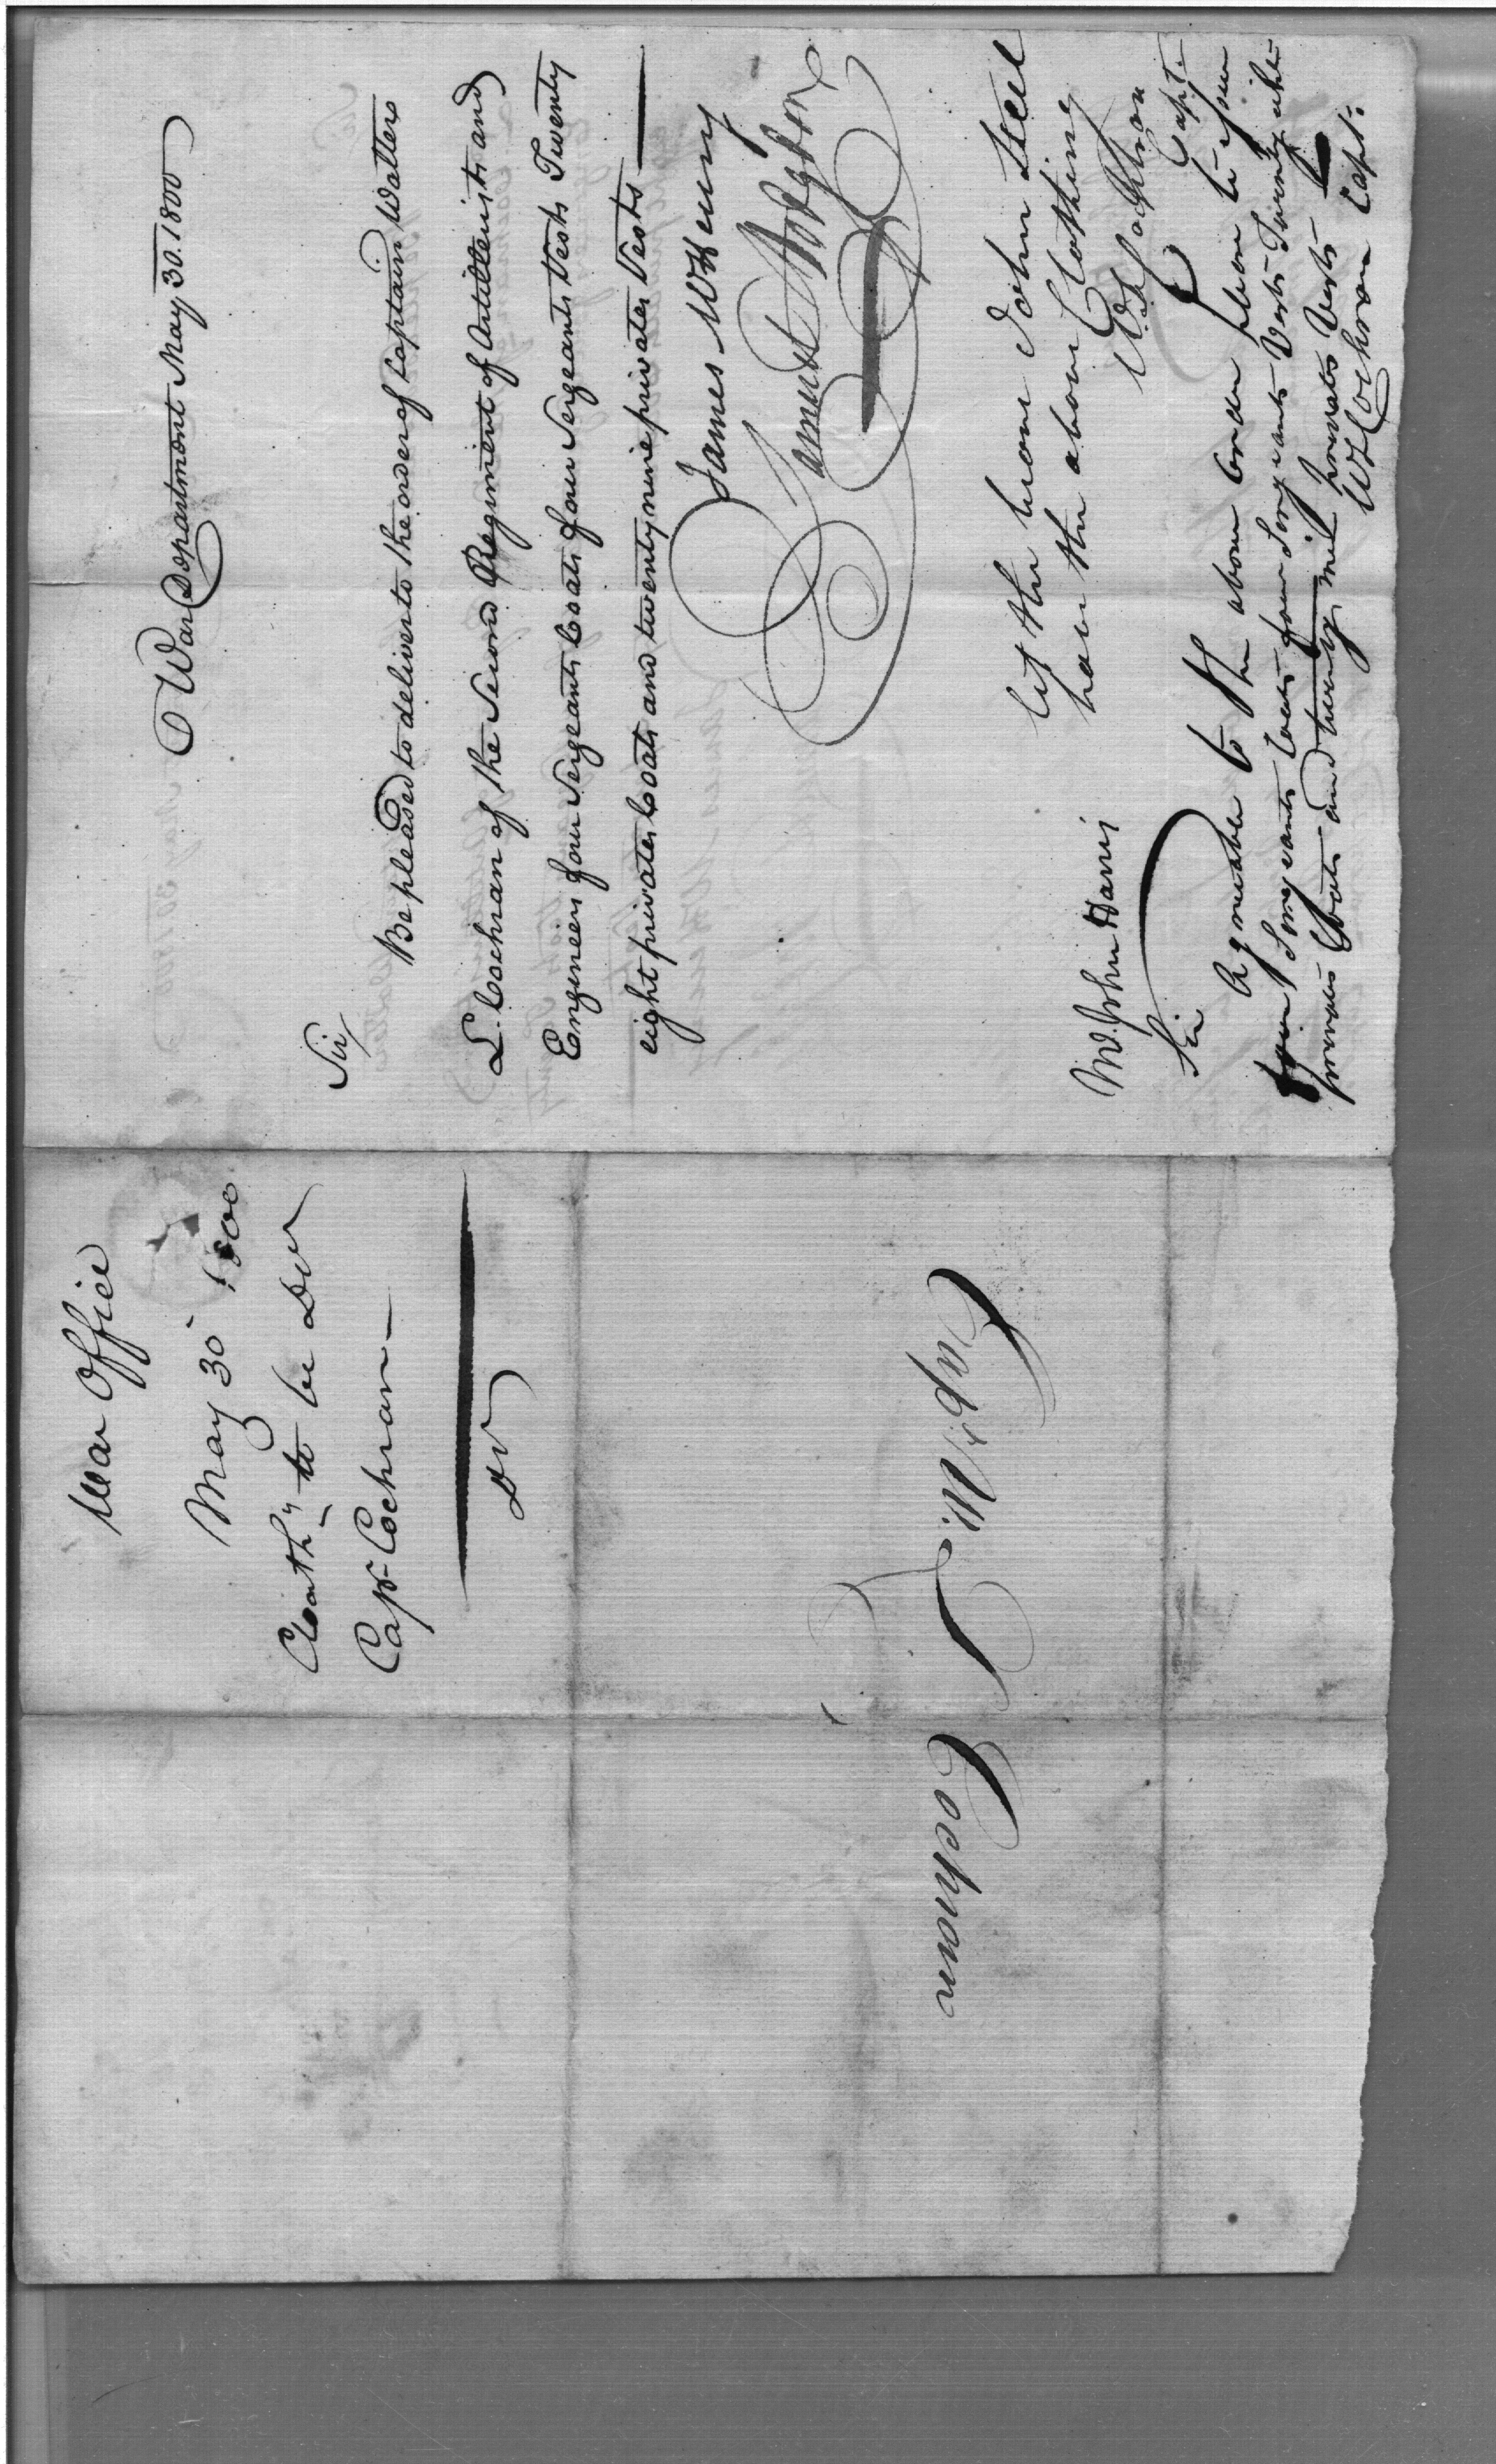 War Department May 30. 1800
Sir,
Be pleased to deliver to the order of Captain Walter
L. Cochran of the Second Regiment of Artillerists and
Engineers four Sergeants Coats four Sergeants Vests Twenty
eight privates Coats and twenty nine privates Vests
James McHenry
Samuel Hodgdon
let the bearer John Steel
have the above Clothing
W L Cochran
Capt.
Mr. John Harris
Sir
Agreeable to the above order please to
four Sergeants Coats four Sergeants Vests Twenty eight
privates Coats and twenty nine privates Vests
W L Cochran Capt.
War Office
May 30 1800
Cloath'g to be DD
Capt Cochran
DD
Capt. W. L
Cochran